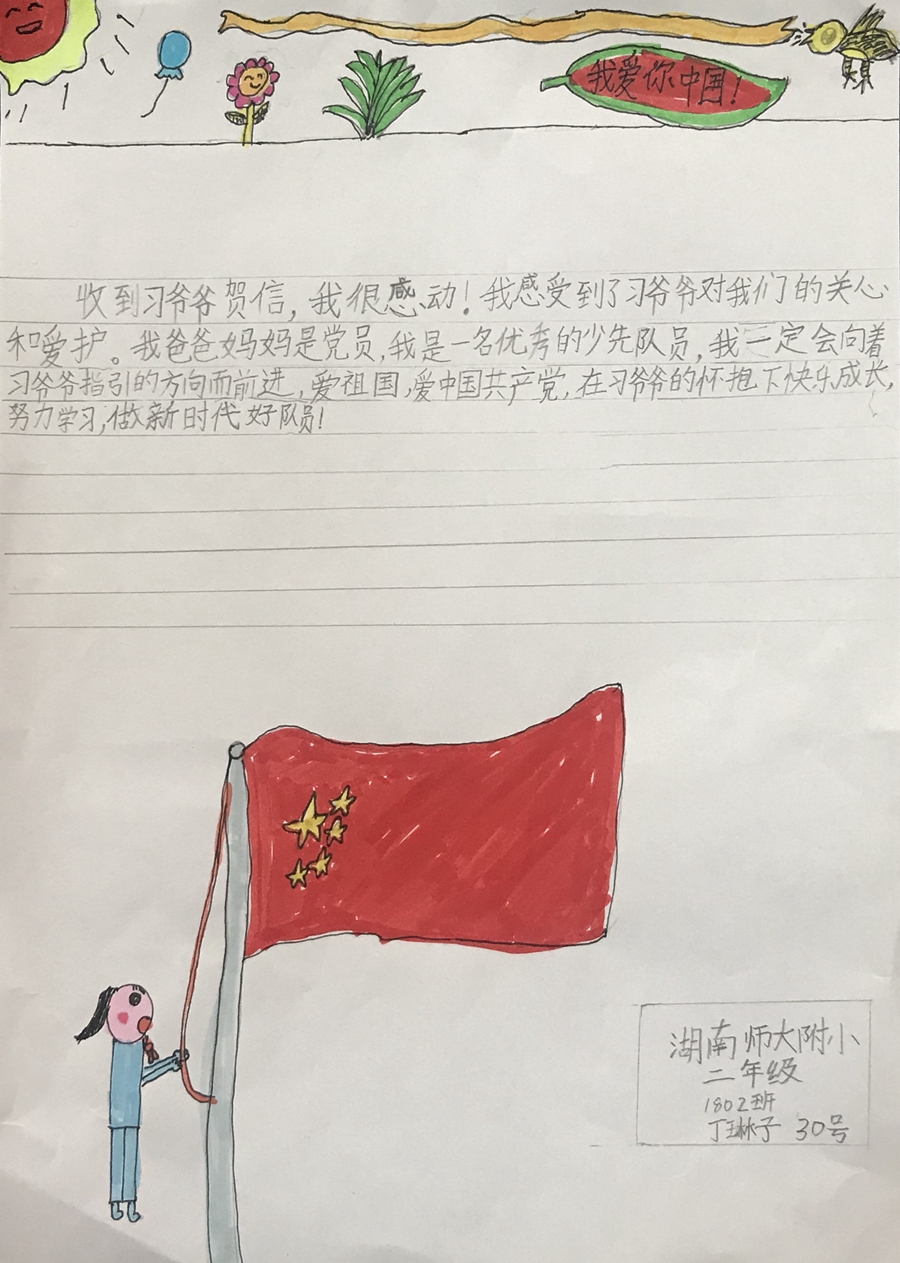 我爱你中国!
收到习爷爷贺信,我很感动!我感受到了习爷爷对我们的关心
和爱护。我爸爸妈妈是党员,我是一名优秀的少先队员,我一定会向着
习爷爷指引的方向而前进,爱祖国,爱中国共产党,在习爷爷的怀抱下快乐成长,
努力学习,做新时代好队员!
湖南师大附小
二年级
1802班
丁琳子 30号